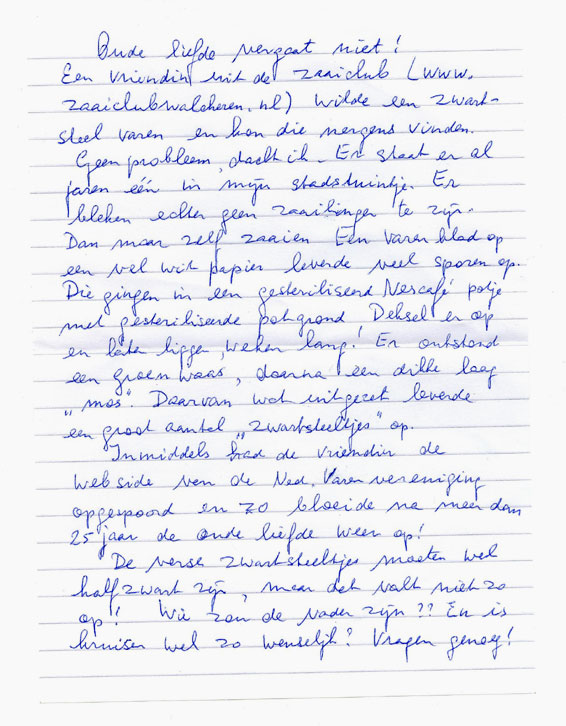 Oude liefde vergaat niet!
Een vriendin uit de zaaiclub (www.
zaaiclubwalcheren.nl) wilde een zwart-
steel varen en kon die nergens vinden.
Geen probleem, dacht ik. Er staat er al
jaren één in mijn stadstuintje. Er
bleken echter geen zaailingen te zijn.
Dan maar zelf zaaien Een varenblad op
een vel wit papier leverde veel sporen op.
Die gingen in een gesteriliseerd Nescafé potje
met gesteriliseerde potgrond! Deksel er op
en laten liggen, weken lang! Er ontstond
een groen waas, daarna een dikke laag
„mos". Daarvan wat uitgezet leverde
een groot aantal „zwartsteeltjes" op.
Inmiddels had de vriendin de
webside van de Ned. Varenvereniging
opgespoord en zo bloeide na meer dan
25 jaar de oude liefde weer op!
De verse zwartsteeltjes moeten wel
half zwart zijn, maar dat valt niet zo
op! Wie zou de vader zijn?? En is
kruisen wel zo wenselijk? Vragen genoeg!